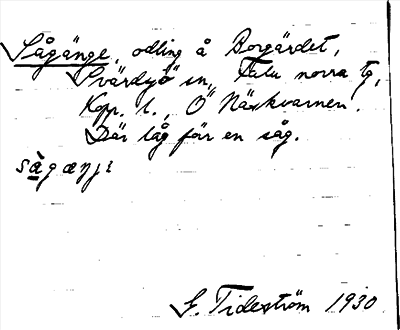 Sågänge, odling å Borgärdet,
Svärdsjö sn, Falu norra tg,
Kopp. l., Ö Näskvarnen.
Där låg förr en såg.
G. Tideström 1930